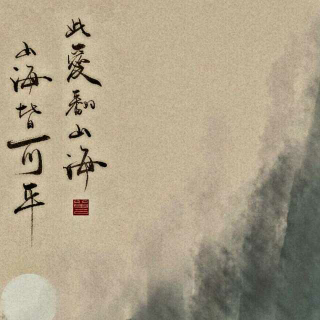 此爱翻山海
山海皆可平